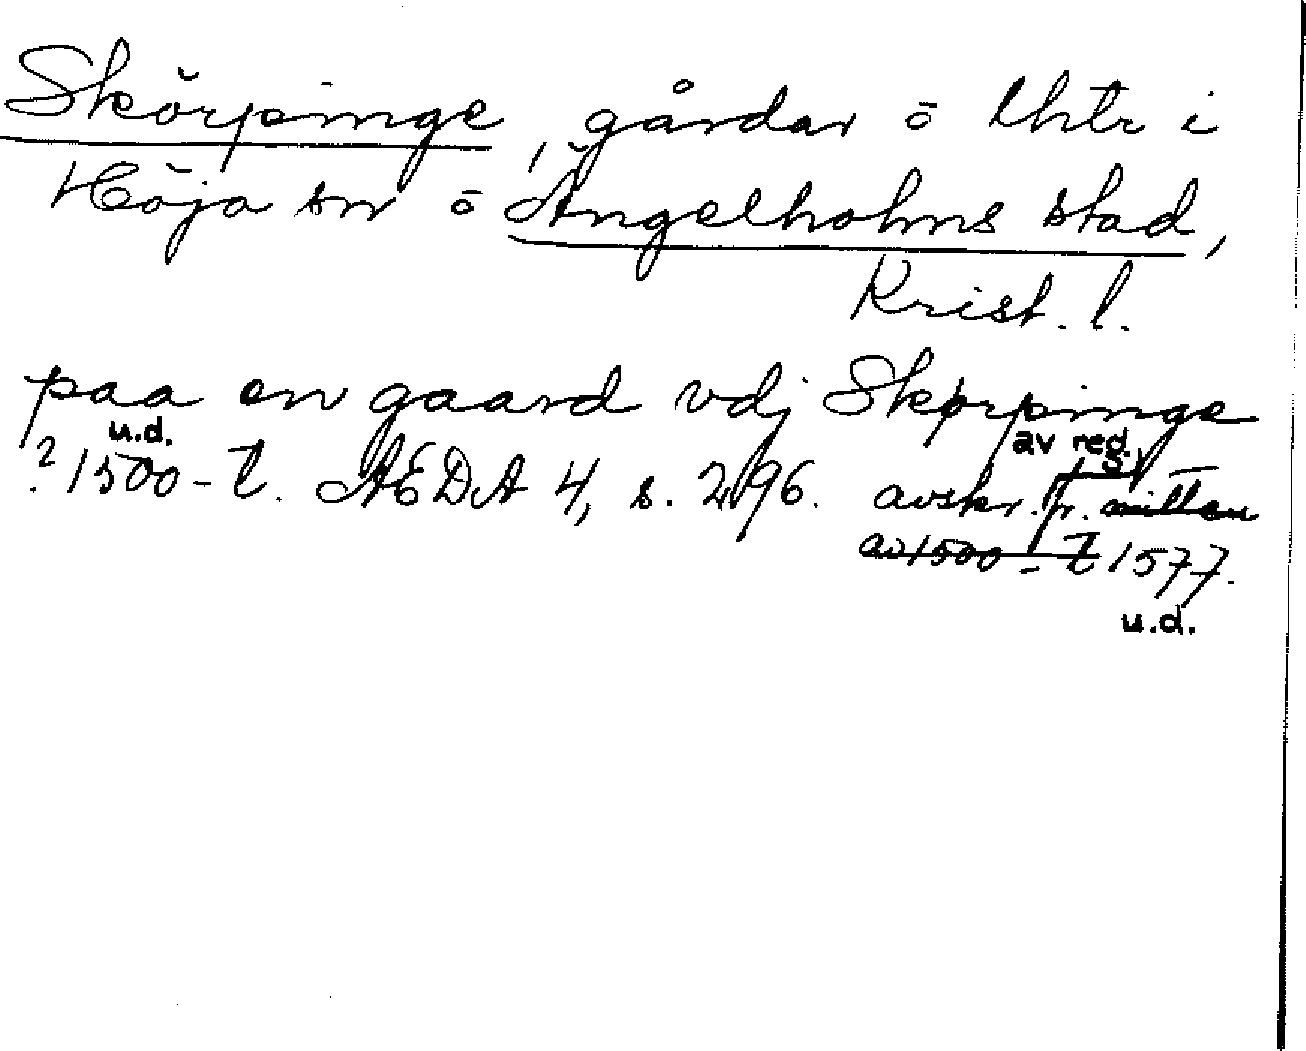 Skörpinge, gårdar o lhtr i
Höja sn o Ängelholms stad,
Krist. l.
paa en gaard vdj Skørpinge
u.d. av reg.
? 1500-t. AEDA 4, s. 296. avskr. fr. mitten
av 1500-t 1577.
u.d.